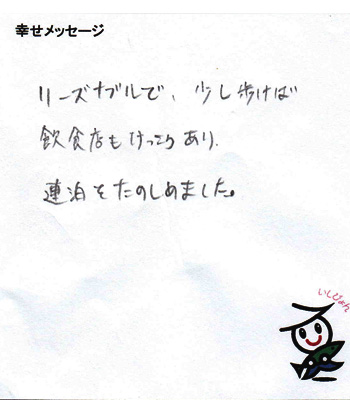 幸せメッセージ
リーズナブルで、少し歩けば
飲食店もけっこうあり、
連泊をたのしめました。
いしぴょん